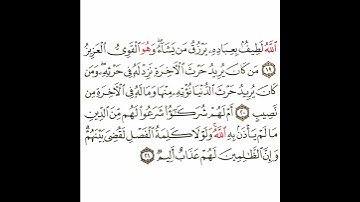 ٱللَّهُ لَطِيفٌۢ بِعِبَادِهِۦ يَرْزُقُ مَن يَشَآءُ ۖ وَهُوَ ٱلْقَوِىُّ ٱلْعَزِيزُ
١٩ مَن كَانَ يُرِيدُ حَرْثَ ٱلْـَٔاخِرَةِ نَزِدْ لَهُۥ فِى حَرْثِهِۦ ۖ وَمَن
كَانَ يُرِيدُ حَرْثَ ٱلدُّنْيَا نُؤْتِهِۦ مِنْهَا وَمَا لَهُۥ فِى ٱلْـَٔاخِرَةِ مِن
نَّصِيبٍ ٢٠ أَمْ لَهُمْ شُرَكَـٰٓؤُا۟ شَرَعُوا۟ لَهُم مِّنَ ٱلدِّينِ
مَا لَمْ يَأْذَنۢ بِهِ ٱللَّهُ ۚ وَلَوْلَا كَلِمَةُ ٱلْفَصْلِ لَقُضِىَ بَيْنَهُمْ ۗ
وَإِنَّ ٱلظَّـٰلِمِينَ لَهُمْ عَذَابٌ أَلِيمٌ ٢١